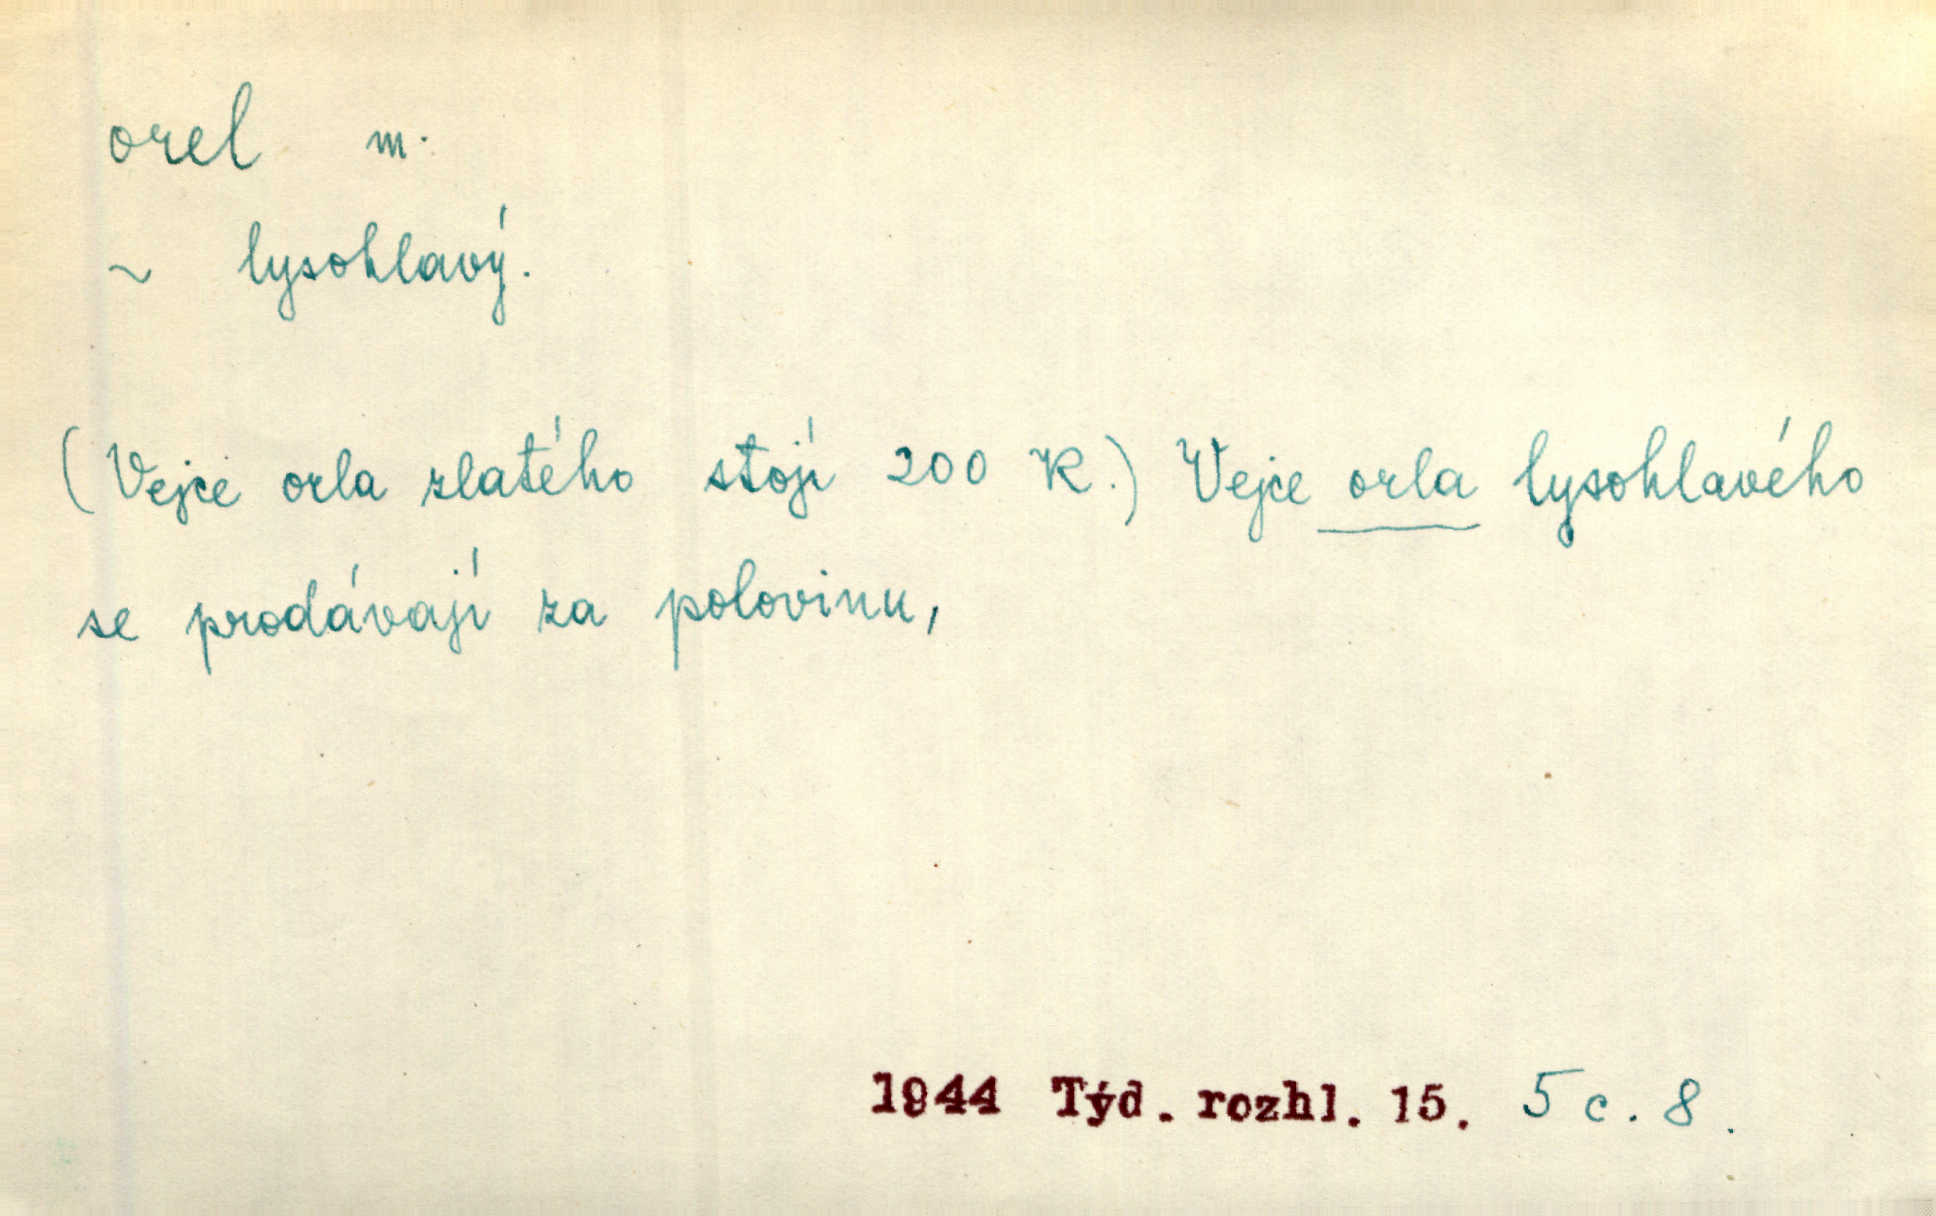 orel m.
~ lysohlavý.
(Vejce orla zlatého stojí 200 K.) Vejce orla lysohlavého
se prodávají za polovinu,
1944 Týd. rozhl. 15. 5 c. 8.